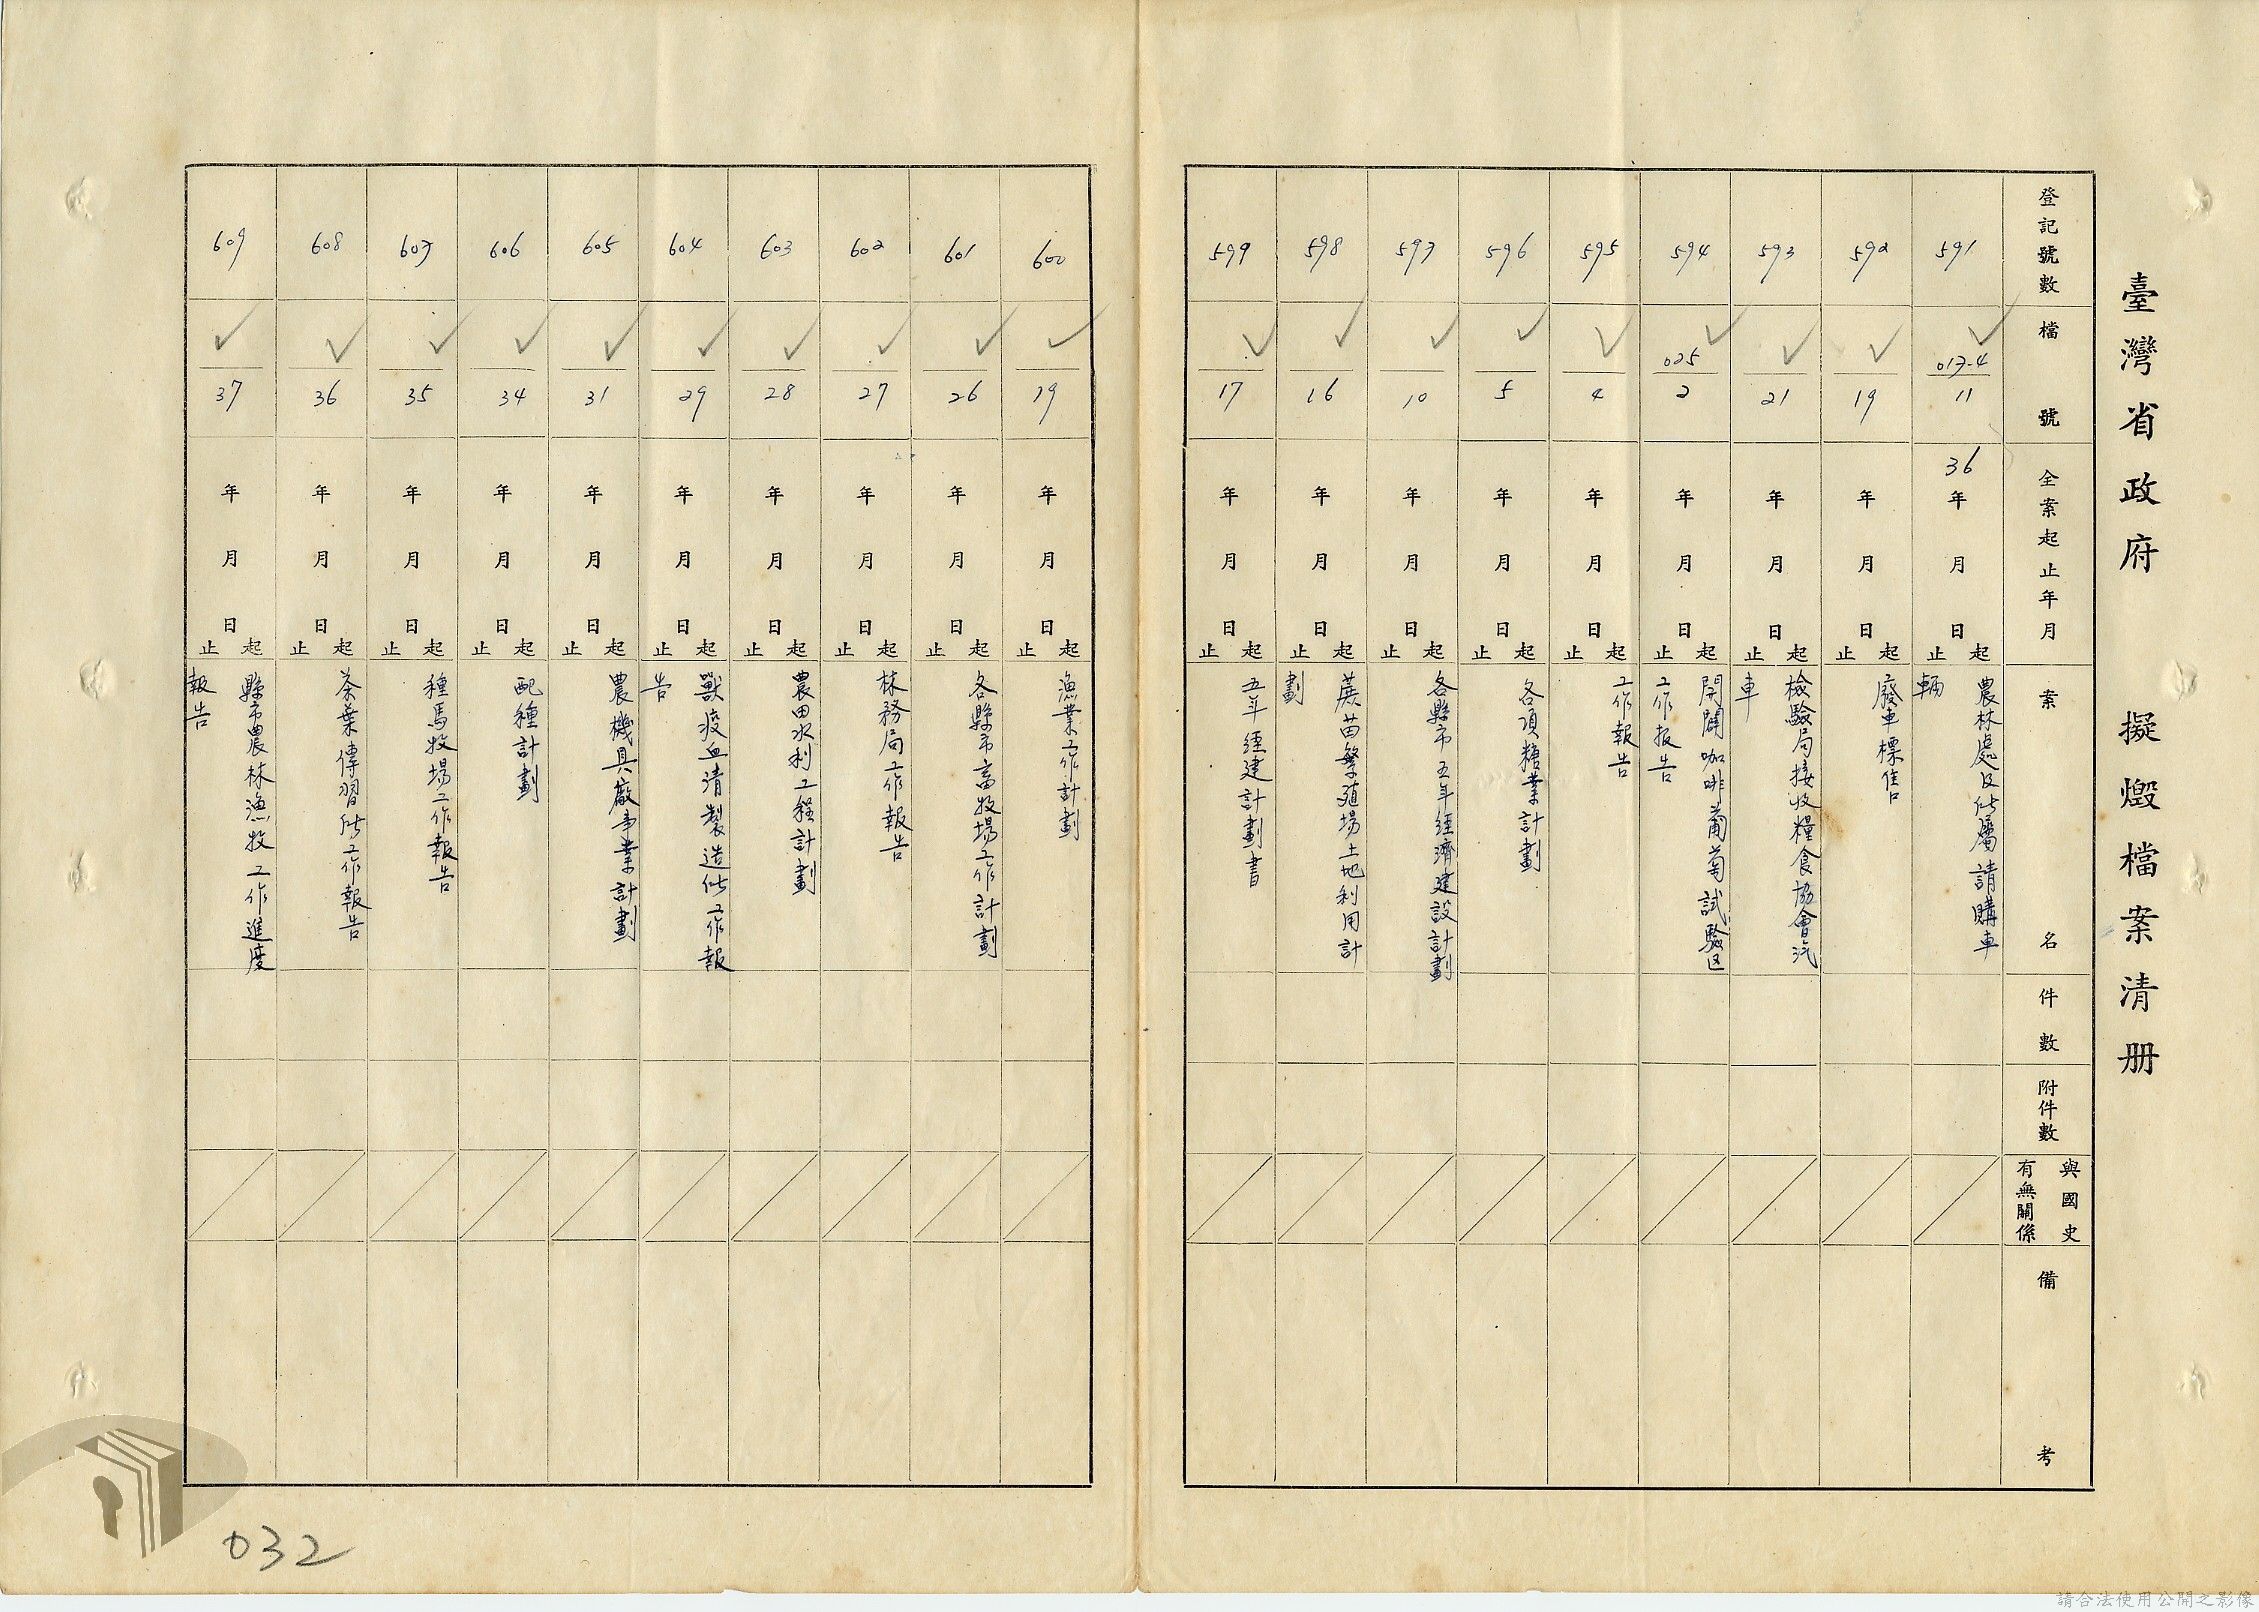 臺灣省政府 擬燬檔案清册
登記號數
檔號
全案起止年月
案名
件數
附件數
與國史
有無關係
備考
591
013-4
11
36年月日起止
農林處及所屬請購車
輛
592
19
年月日起止
廢車標售
593
21
年月日起止
檢驗局接收糧食協會汽
車
594
025
2
年月日起止
開闢咖啡葡萄試驗区
工作报告
595
4
年月日起止
工作報告
596
5
年月日起止
各項糖業計劃
597
10
年月日起止
各縣市五年經濟建設計劃
598
16
年月日起止
蔗苗繁殖場土地利用計
劃
599
17
年月日起止
五年經建計劃書
600
19
年月日起止
漁業工作計劃
601
26
年月日起止
各縣市畜牧場工作計劃
602
27
年月日起止
林務局工作報告
603
28
年月日起止
農田水利工程計劃
604
29
年月日起止
獸疫血清製造所工作報
告
605
31
年月日起止
農機具廠事業計劃
606
34
年月日起止
配種計劃
607
35
年月日起止
種馬牧場工作報告
608
36
年月日起止
茶葉傳習所工作報告
609
37
年月日起止
縣市農林漁牧工作進度
報告
032
請合法使用公開之影像